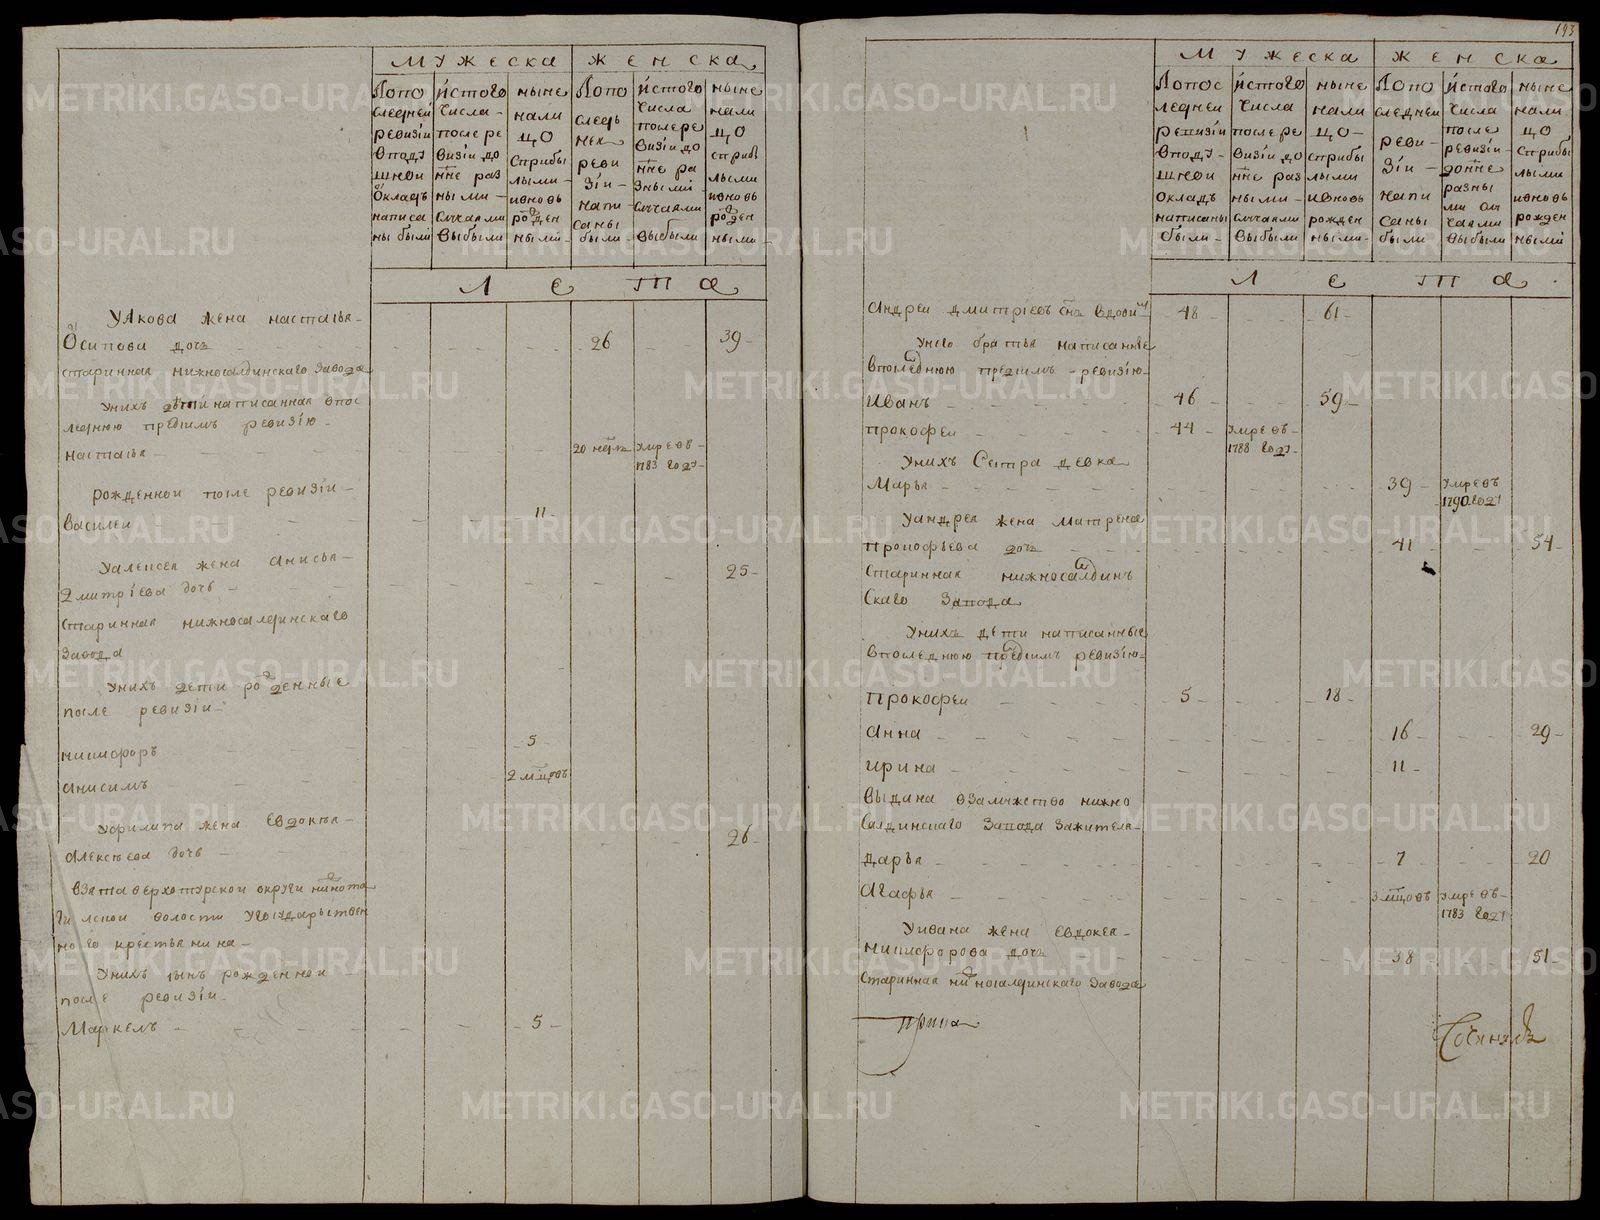 мужеска женска
Лопо следней ревизiи вподу шной окладъ написа ны были
истого числа после ре визiи до нне раз ными случаями выбыли
ныне нали цо сприбы лыми ивновь рожден ными
Лопо следъ ней реви зiи напи саны были
истого числа после ре визiи до нне ра зными случаями выбыли
ныне нали цо сприбы лыми ивновь рожден ными
лета
Уякова жена настасья
Осипова дочь 26 39
старинная нижносалдинскаго завода
Унихъ дети написанная впос
леднюю предимъ ревизiю
настасья 20 нед умре въ 1783 году
рожденной после ревизiи
василей 11
Уалексея жена анисья 25
дмитрiева дочь
старинная нижносалдинскаго
завода
Унихъ дети рожденные
после ревизiи
никифоръ 5
анисимъ 2 мцовъ
Уфилипа жена Евдокья 26
алексеева дочь
взята верхотурской округи нижнота
гилской волости Угосударствен
ного крестьянина
Унихъ сынъ рожденной
после ревизiи
Маркелъ 5
193
мужеска женска
Лопос ледней ревизiи вподу шной окладъ написаны были
истого числа после ре визiи до нне раз ными случаями выбыли
ныне нали цо сприбы лыми ивновь рожден ными
Лопо следней реви зiи напи саны были
истого числа после ревизiи донне разны ми слу чаями выбыли
ныне нали цо сприбы лыми ивновь рожден ными
лета
Андреи дмитрiевъ снъ вдовии 48 61
Унего братья написанные
впоследнюю предимъ ревизiю
Иванъ 46 59
прокофеи 44 умре въ 1788 году
Унихъ Сестра девка
Марья 39 умре въ 1790 году
Уандрея жена матрена
прокофьева дочь 41 54
Старинная нижносалдин
Скаго завода
Унихъ дети написанные
впоследнюю предимъ ревизiю
Прокофеи 5 18
Анна 16 29
ирина 11
выдана взамужество нижно
Салдинскаго Завода Зажителя
дарья 7 20
Агафья 3 мцовъ умре въ 1783 году
Уивана жена евдокея
никифорова дочь 38 51
Старинная нижносалдинскаго завода
METRIKI.GASO-URAL.RU